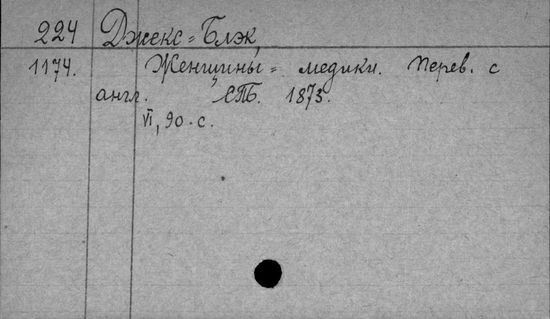 224 Джекс=Блэк,
1174. Женщины=медики. Перев. с
англ. СПБ. 1873.
VI, 90 с.